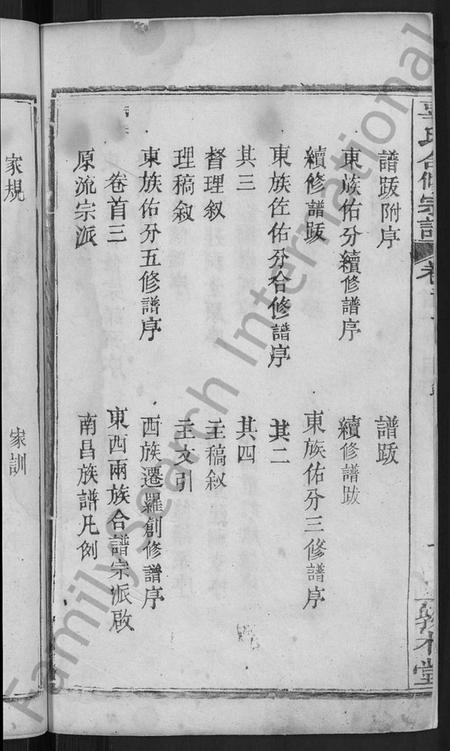 氏合修宗譜 卷首
敦本堂
譜跋附序 譜跋
東族佑分續修譜序 續修譜跋
續修譜跋 東族佑分三修譜序
東族佐佑分合修譜序 其二
其三 其四
督理叙 主稿叙
理稿叙 主文引
東族佑分五修譜序 西族遷羅創修譜序
卷首三 東西兩族合譜宗派啟
原流宗派 南昌族譜凡例
家規 家訓
FamilySearch International